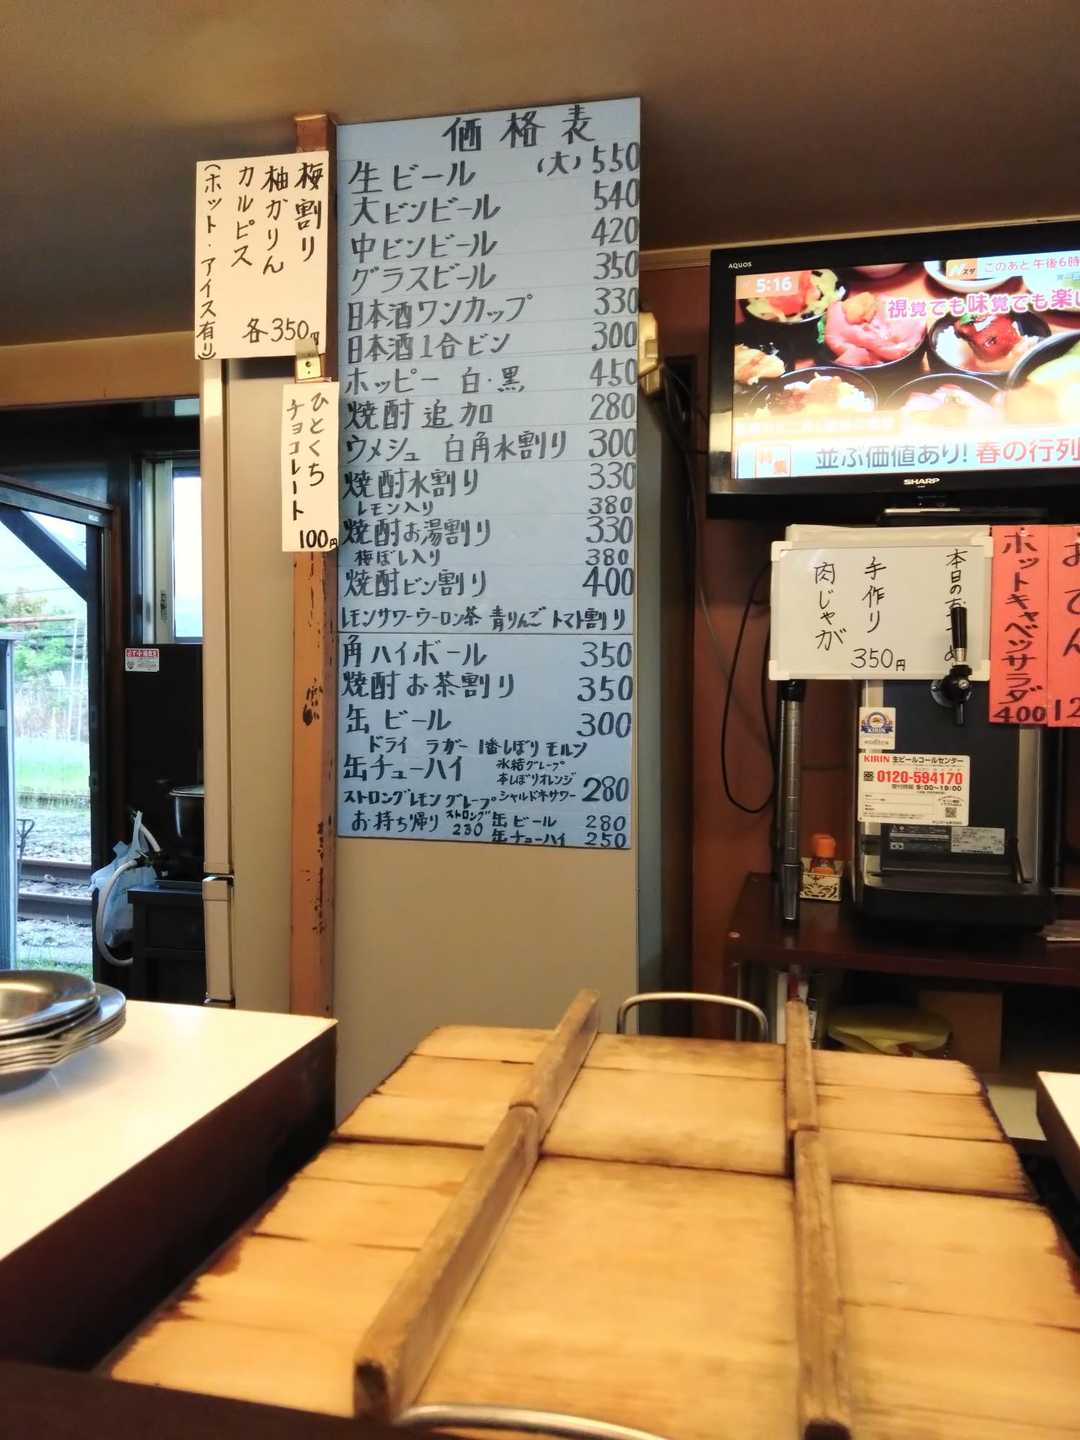 価格表
生ビール (大) 550
大ビンビール 540
中ビンビール 420
グラスビール 350
日本酒ワンカップ 330
日本酒1合ビン 300
ホッピー 白・黒 450
焼酎追加 280
ウメシュ 白角水割り 300
焼酎水割り 330
レモン入り 380
焼酎お湯割り 330
梅ぼし入り 380
焼酎ビン割り 400
レモンサワーウーロン茶 青りんご トマト割り
角ハイボール 350
焼酎お茶割り 350
缶ビール 300
ドライ ラガー 1番しぼり モルツ
缶チューハイ 氷結グレープ
本しぼりオレンジ
ストロングレモン グレープ シャルドネサワー 280
お持ち帰り ストロング 230 缶ビール 280
缶チューハイ 250
梅割り
柚かりん
カルピス
(ホット・アイス有り)
各350円
ひとくち
チョコレート
100円
AQUOS
5:16
このあと午後6時
視覚でも味覚でも楽し
特集
並ぶ価値あり!春の行列
SHARP
本日のおつめ
手作り
肉じゃが
350円
ホットキャベツサラダ
400
おでん
12
KIRIN
KIRIN 生ビールコールセンター
0120-594170
受付時間 9:00〜19:00